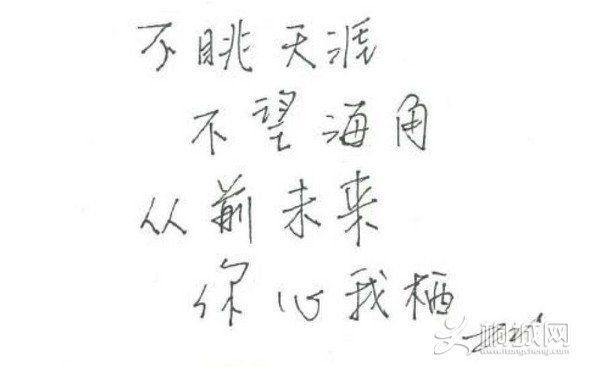 不眺天涯
不望海角
从前未来
你心我栖
桐城网
www.itongcheng.com